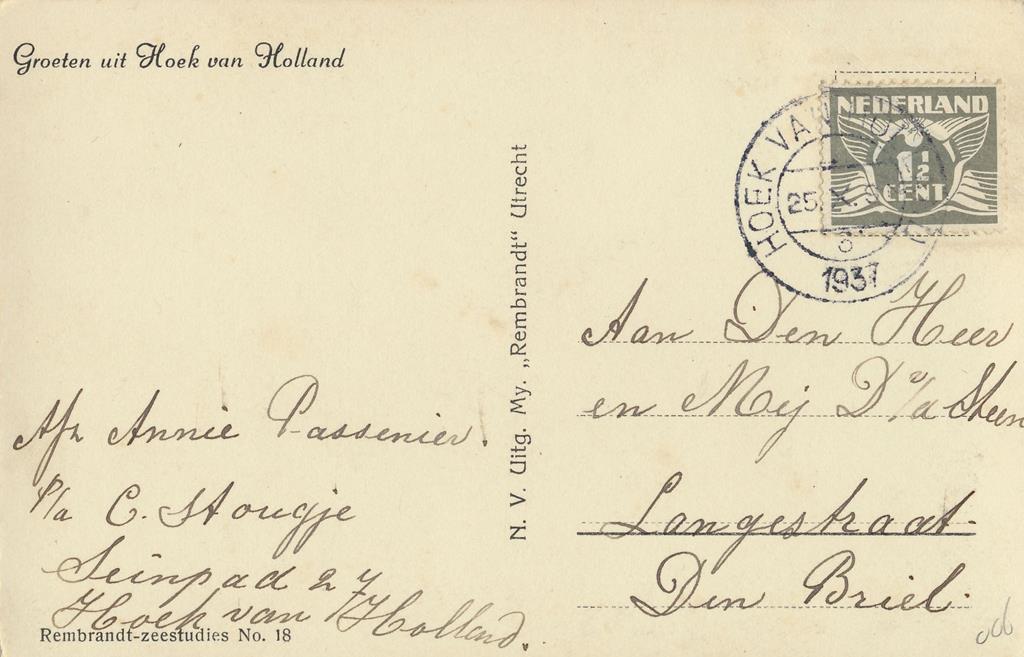 Groeten uit Hoek van Holland
NEDERLAND
1½
CENT
HOEK VAN
25. X.
1937
N. V. Uitg. My. „Rembrandt“ Utrecht
Aan Den Heer
en Mej D v/a Steen
Langestraat.
Den Briel.
Afz Annie Passenier.
p/a C. Stougje
Seinpad 27
Hoek van Holland.
Rembrandt-zeestudies No. 18